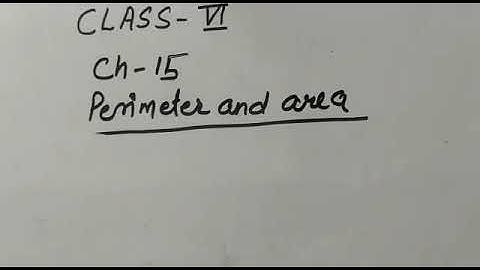 CLASS - VI
Ch - 15
Perimeter and area